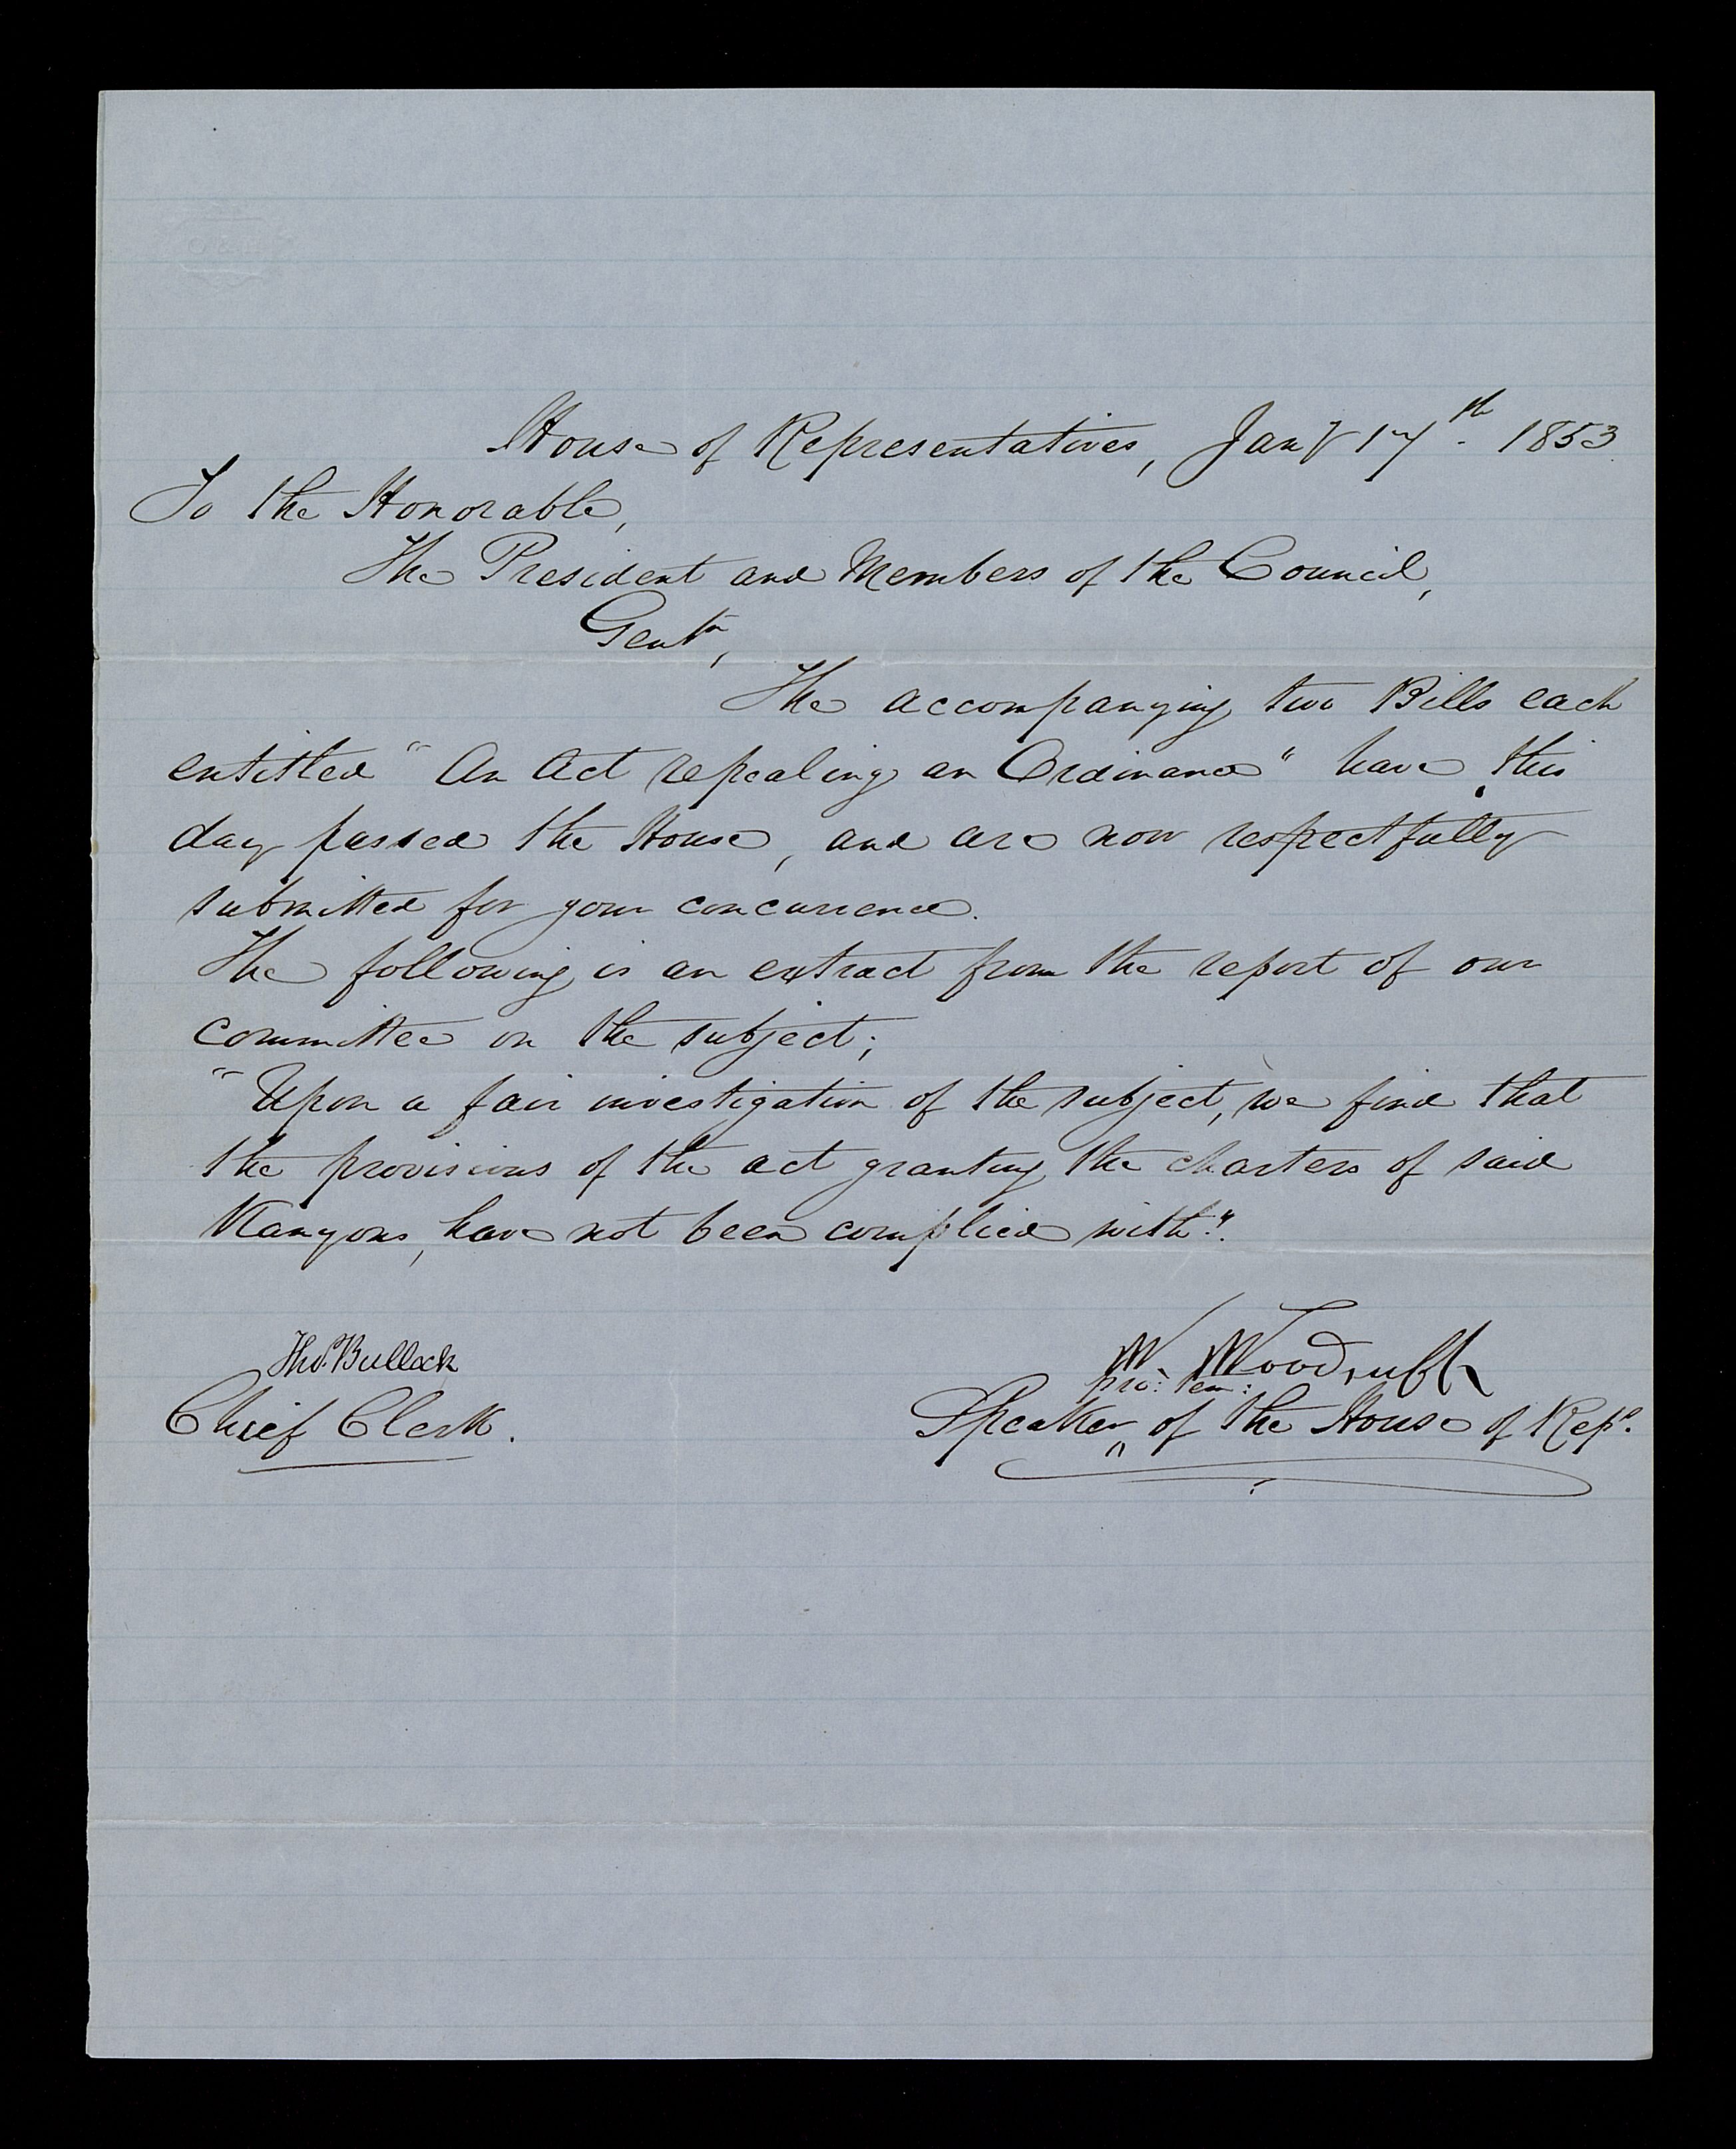 House of Representatives, Jany 17th. 1853.
To the Honorable,
The President and Members of the Council,
Gentn,
The accompanying two Bills each
entitled "An Act repealing an Ordinance" have this
day passed the House, and are now respectfully
submitted for your concurrence.
The following is an extract from the report of our
committee on the subject;
"Upon a fair investigation of the subject, we find that
the provisions of the act granting the charters of said
Kanyons, have not been complied with".
Thos. Bullock
Chief Clerk.
W. Woodruff
pro: tem:
Speaker of the House of Reps.